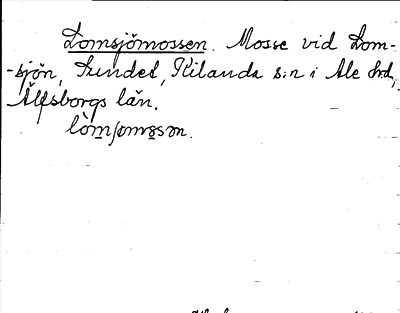 Lomsjömossen. Mosse vid Lom-
-sjön, Sundet, Kilanda s:n i Ale hd,
Älfsborgs län.
lòmʃömåsən.